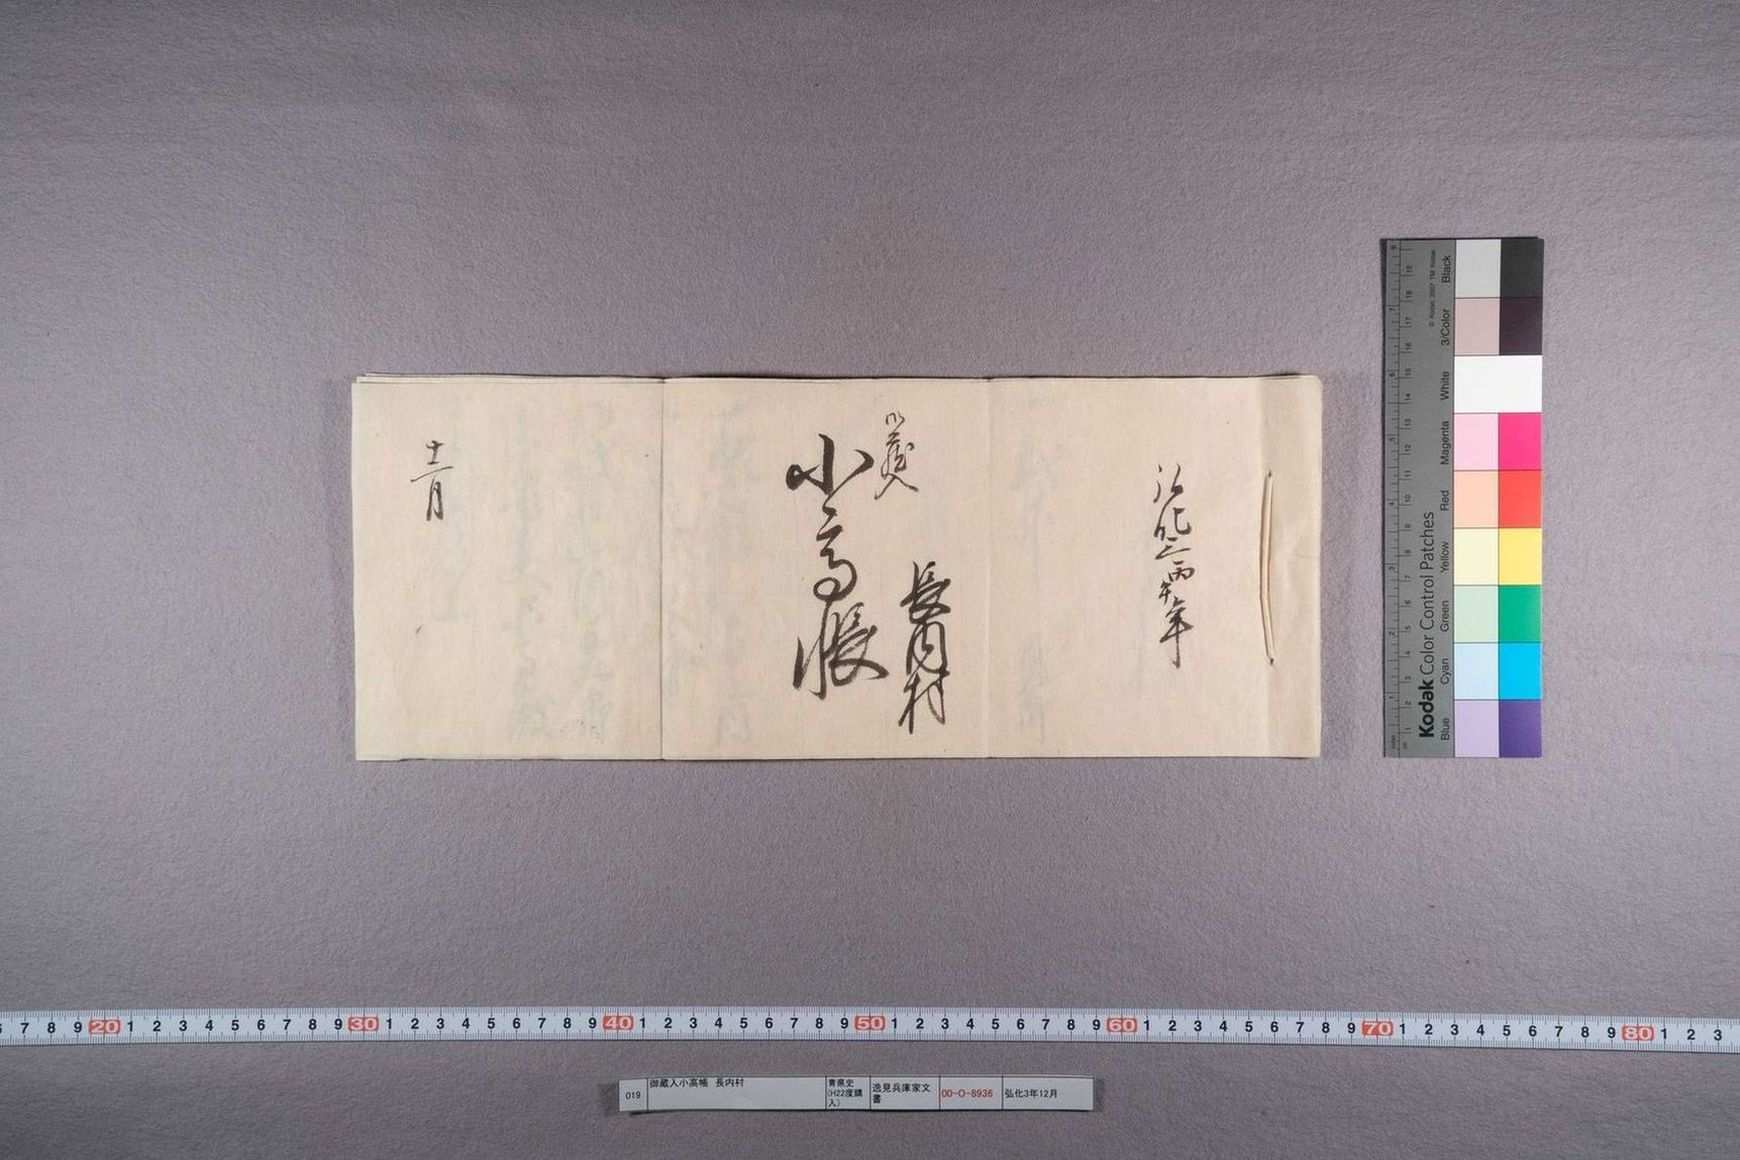 弘化三丙午年
長内村
御蔵入
小高帳
十二月
Kodak Color Control Patches
© Kodak, 2007 TM: Kodak
Blue Cyan Green Yellow Red Magenta White 3/Color Black
6 7 8 9 20 1 2 3 4 5 6 7 8 9 30 1 2 3 4 5 6 7 8 9 40 1 2 3 4 5 6 7 8 9 50 1 2 3 4 5 6 7 8 9 60 1 2 3 4 5 6 7 8 9 70 1 2 3 4 5 6 7 8 9 80 1 2 3
019
御蔵入小高帳 長内村
青県史
(H22度購
入)
逸見兵庫家文
書
00-O-8936
弘化3年12月